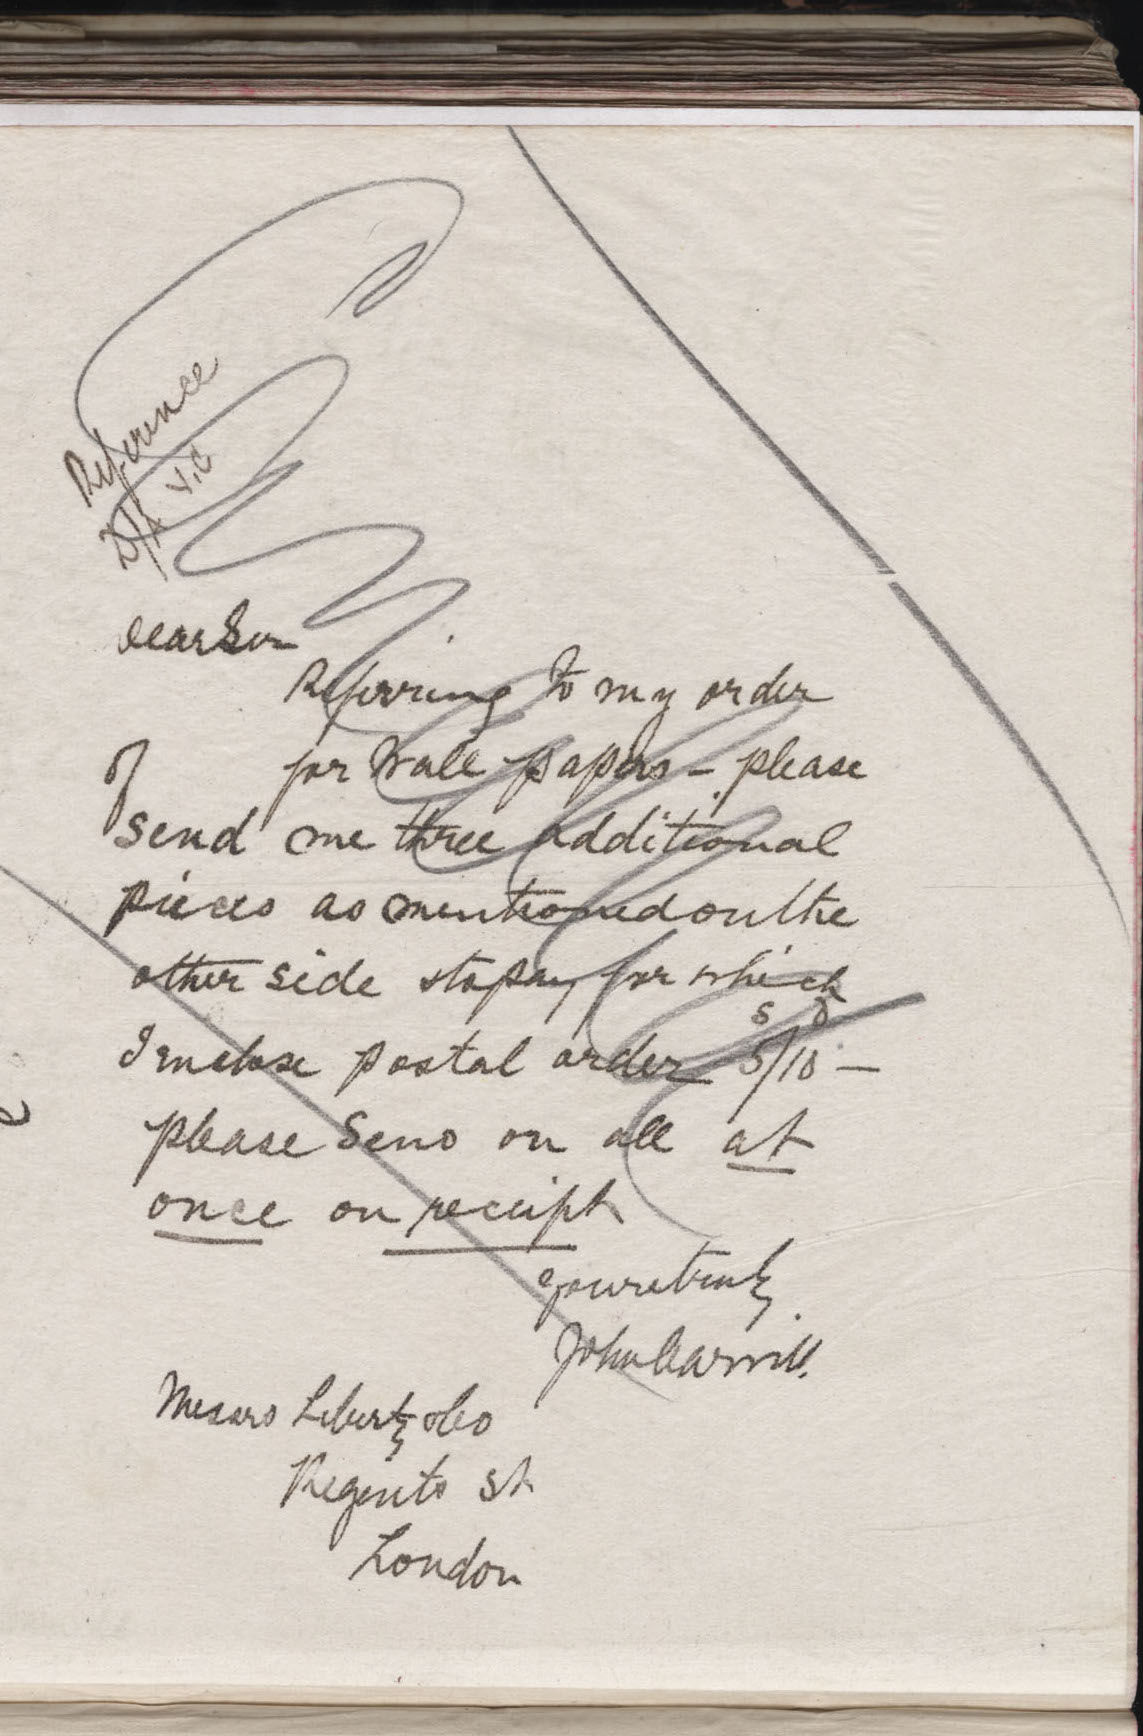 Reference
D/1 V.C
Dear Sir
Referring to my order
of for Wall papers - please
send me three additional
pieces as mentioned on the
other side to pay for which
s d
I enclose postal order 5/10 -
please send on all at
once on receipt
Yours truly
John Carvill.
Messrs Liberty & Co
Regents St
London